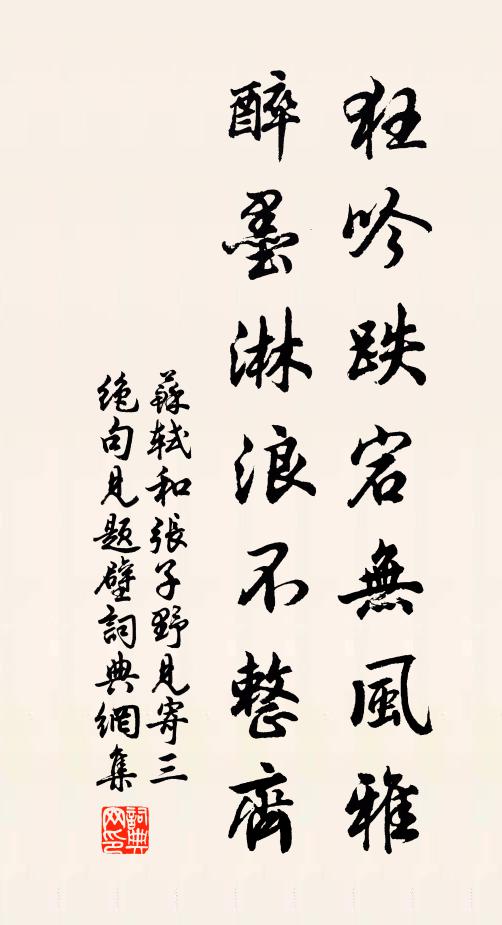 狂吟跌宕無風雅
醉墨淋浪不整齊
蘇軾和張子野見寄三
絶句見題壁詞典網集
詞典
网印